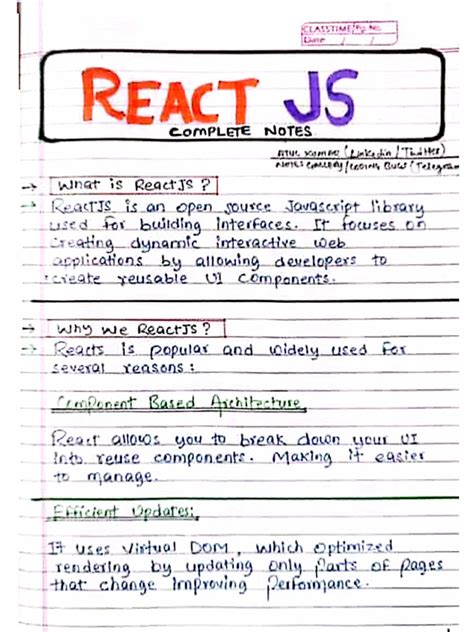 CLASSTIME Pg. No.
Date / /
REACT JS
COMPLETE NOTES
Atul Kumar (Linkedin / Twitter)
NOTES GALLERY / CODING BUGS (Telegram
→ What is ReactJS ?
→ ReactJS is an open source Javascript library
used for building interfaces. It focuses on
creating dynamic interactive web
applications by allowing developers to
create reusable UI components.
→ Why We ReactJS ?
→ Reacts is popular and widely used for
several reasons :
Component Based Architecture
React allows you to break down your UI
into reuse components. Making it easier
to manage.
Efficient Updates:
It uses Virtual DOM, which optimized
rendering by updating only parts of pages
that change improving Performance.